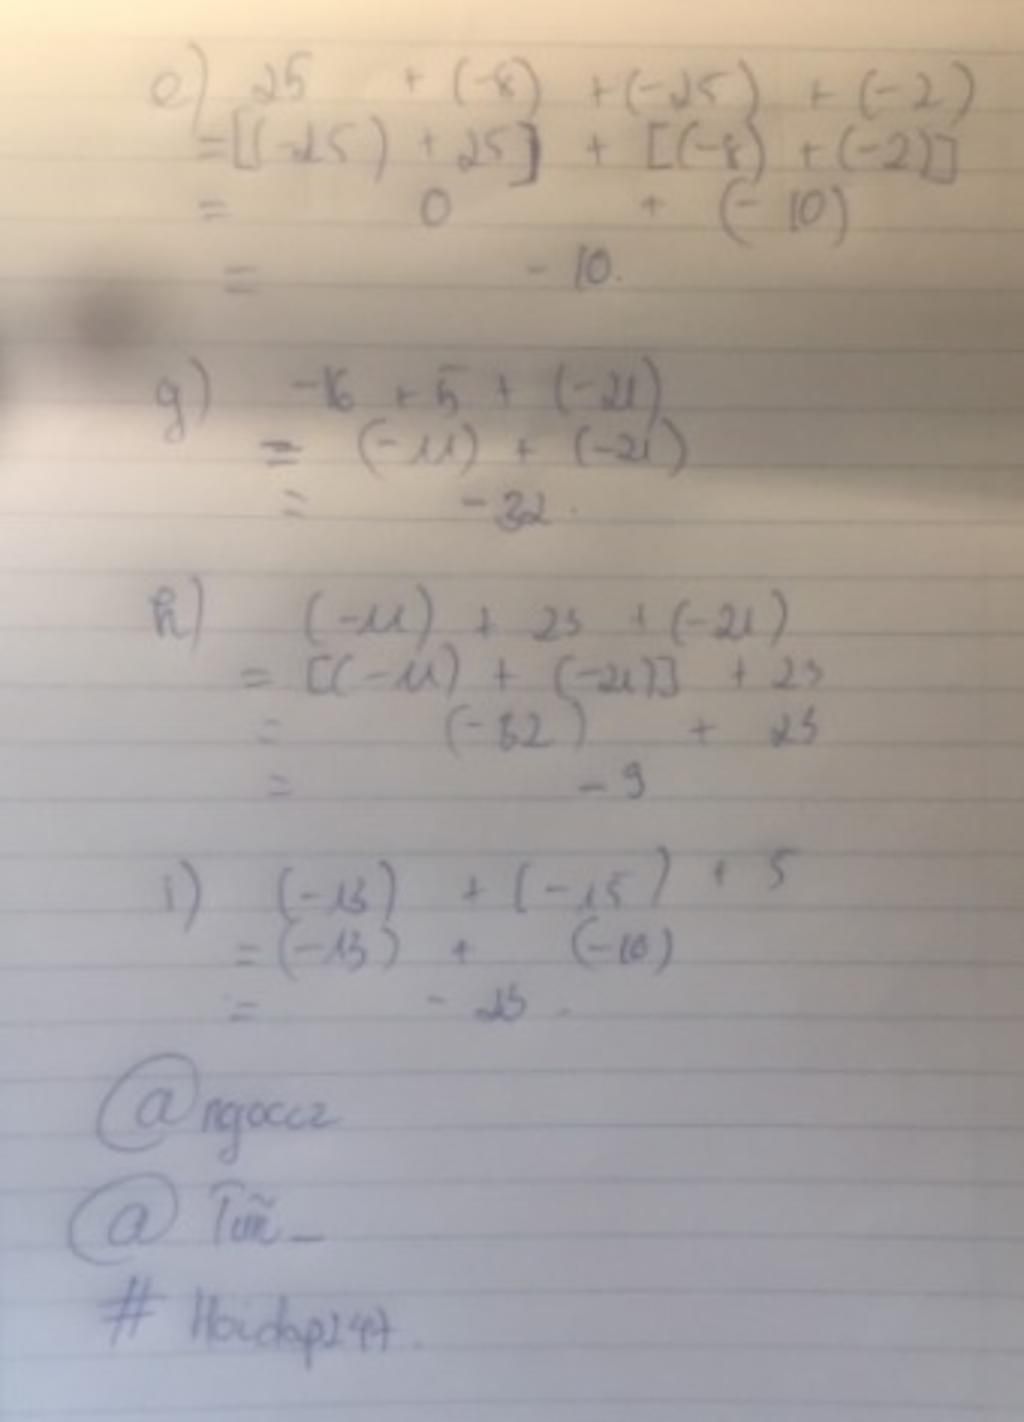 e) 25 + (-8) + (-25) + (-2)
= [(-25) + 25] + [(-8) + (-2)]
= 0 + (-10)
= -10.
g) -16 + 5 + (-21)
= (-11) + (-21)
= -32.
h) (-11) + 23 + (-21)
= [(-11) + (-21)] + 23
= (-32) + 23
= -9
i) (-13) + (-15) + 5
= (-13) + (-10)
= -23.
@ngoccz
@
# Hoidap247.